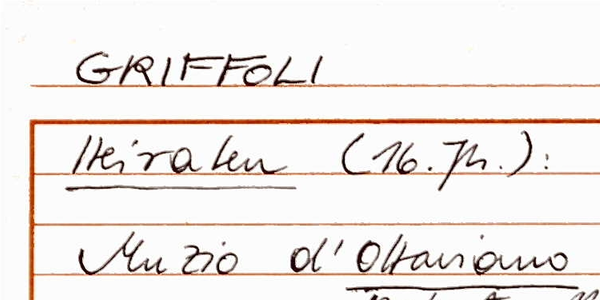 GRIFFOLI
Heiraten (16. Jh.):
Muzio d'Ottaviano